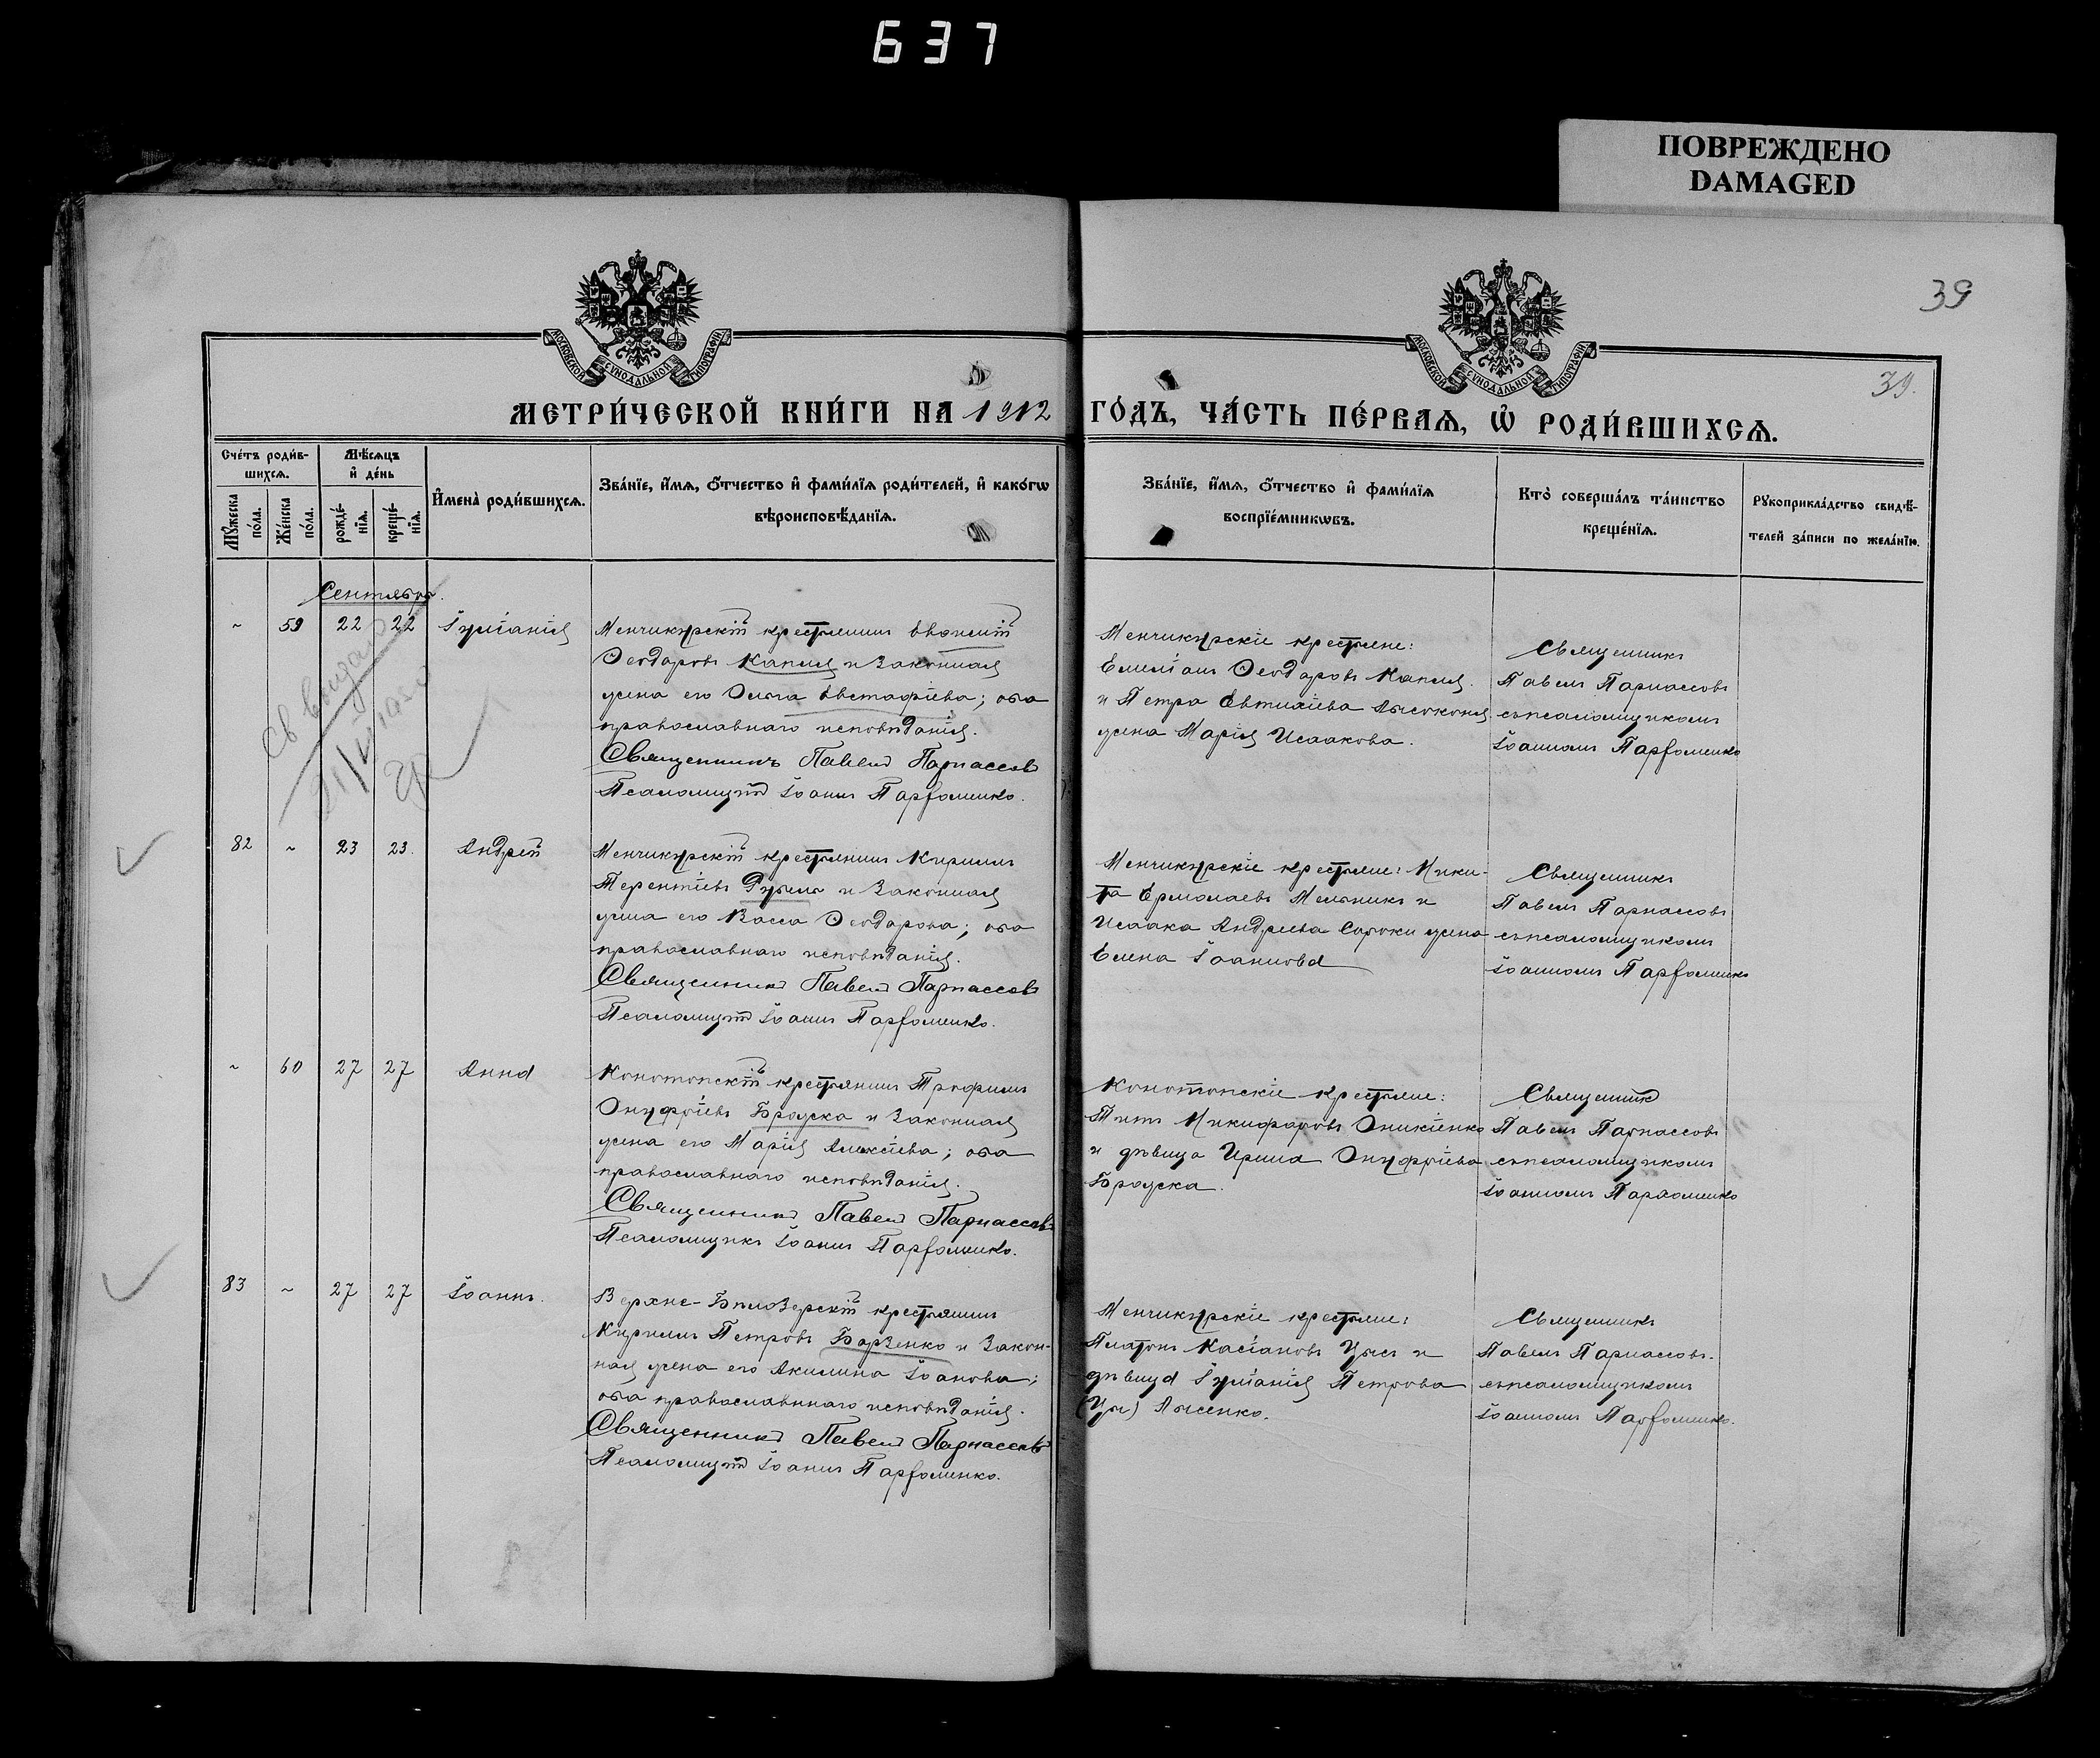 637
ПОВРЕЖДЕНО
DAMAGED
39
МОСКОВСКОЙ СѴНОДАЛЬНОЙ ТИПОГРАФІИ
МОСКОВСКОЙ СѴНОДАЛЬНОЙ ТИПОГРАФІИ
39.
МЕТРИ́ЧЕСКОЙ КНИ́ГИ НА 1912 ГО́ДЪ, ЧА́СТЬ ПЕ́РВАѦ, Ѡ҆ РОДИ́ВШИХСѦ.
Сче́тъ роди́в-
шихсѧ.
Мѣ́сѧцъ
и҆ де́нь
Мꙋ́жеска
по́ла.
Же́нска
по́ла.
рожде́-
нїѧ.
креще́-
нїѧ.
И҆мена̀ роди́вшихсѧ.
Зва́нїе, и҆́мѧ, ѻ҆́тчество и҆ фами́лїѧ роди́телей, и҆ како́гѡ
вѣроисповѣ́данїѧ.
Зва́нїе, и҆́мѧ, ѻ҆́тчество и҆ фами́лїѧ
воспрїе́мникѡвъ.
Кто̀ соверша́лъ та́инство
креще́нїѧ.
Рꙋкоприкла́дство свидѣ́-
телей за́писи по жела́нїю.
Сентябрь.
~ 59 22 22 Іуліанія
Менчикурскій крестьянинъ
Ѳеодоровъ Капля и законная
жена его Ольга Евстафіева; оба
православнаго исповѣданія.
Священникъ Павелъ Парнассовъ
Псаломщикъ Іоаннъ Парфоменко.
Менчикурскіе крестьяне:
Емеліанъ Ѳеодоровъ Капля
и Петра Евтихіева Лысоконя
жена Марія Исаакова.
Священникъ
Павелъ Парнассовъ
съ псаломщикомъ
Іоанномъ Парфоменко
Св выдано
82 ~ 23 23. Андрей
Менчикурскій крестьянинъ Кириллъ
Терентіевъ и законная
жена его Васса Ѳеодорова; оба
православнаго исповѣданія.
Священникъ Павелъ Парнассовъ
Псаломщикъ Іоаннъ Парфоменко.
Менчикурскіе крестьяне: Ники-
та Ермолаевъ Мельникъ и
Исаака Андреева Сороки жена
Елена Іоаннова
Священникъ
Павелъ Парнассовъ
съ псаломщикомъ
Іоанномъ Парфоменко
~ 60 27 27 Анна
Конотопскій крестьянинъ Трофимъ
Онуфріевъ Бражска и законная
жена его Марія Алексіева; оба
православнаго исповѣданія.
Священникъ Павелъ Парнассовъ
Псаломщикъ Іоаннъ Парфоменко.
Конотопскіе крестьяне:
Титъ Никифоровъ Оникіенко
и дѣвица Ирина Онуфріева
Бражска.
Священникъ
Павелъ Парнассовъ
съ псаломщикомъ
Іоанномъ Парфоменко
83 ~ 27 27 Іоаннъ.
Верхне-Бѣлозерскій крестьянинъ
Кириллъ Петровъ Борзенко и закон-
ная жена его Акилина Іоанова;
оба православнаго исповѣданія.
Священникъ Павелъ Парнассовъ
Псаломщикъ Іоаннъ Парфоменко.
Менчикурскіе крестьяне:
Платонъ Касіановъ Цысь и
дѣвица Іуліанія Петрова
Лысенко.
Священникъ
Павелъ Парнассовъ
съ псаломщикомъ
Іоанномъ Парфоменко.